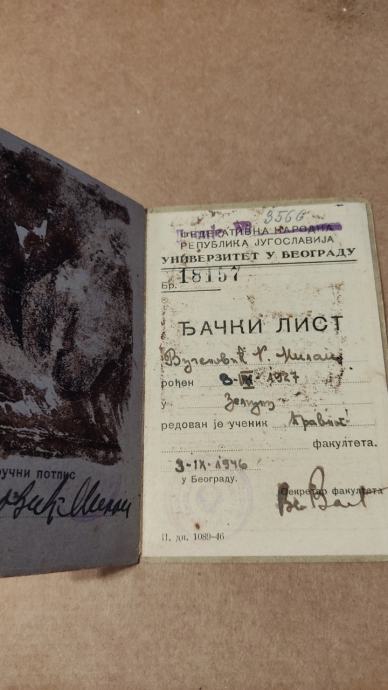 ручни потпис
3566
ФЕДЕРАТИВНА НАРОДНА
РЕПУБЛИКА ЈУГОСЛАВИЈА
УНИВЕРЗИТЕТ У БЕОГРАДУ
Бр. 18157
ЂАЧКИ ЛИСТ
рођен 3-IX-1927
у Земун
редован је ученик Правног
факултета.
3-IX-1946
у Београду.
Секретар факултета
П. дп. 1089-46